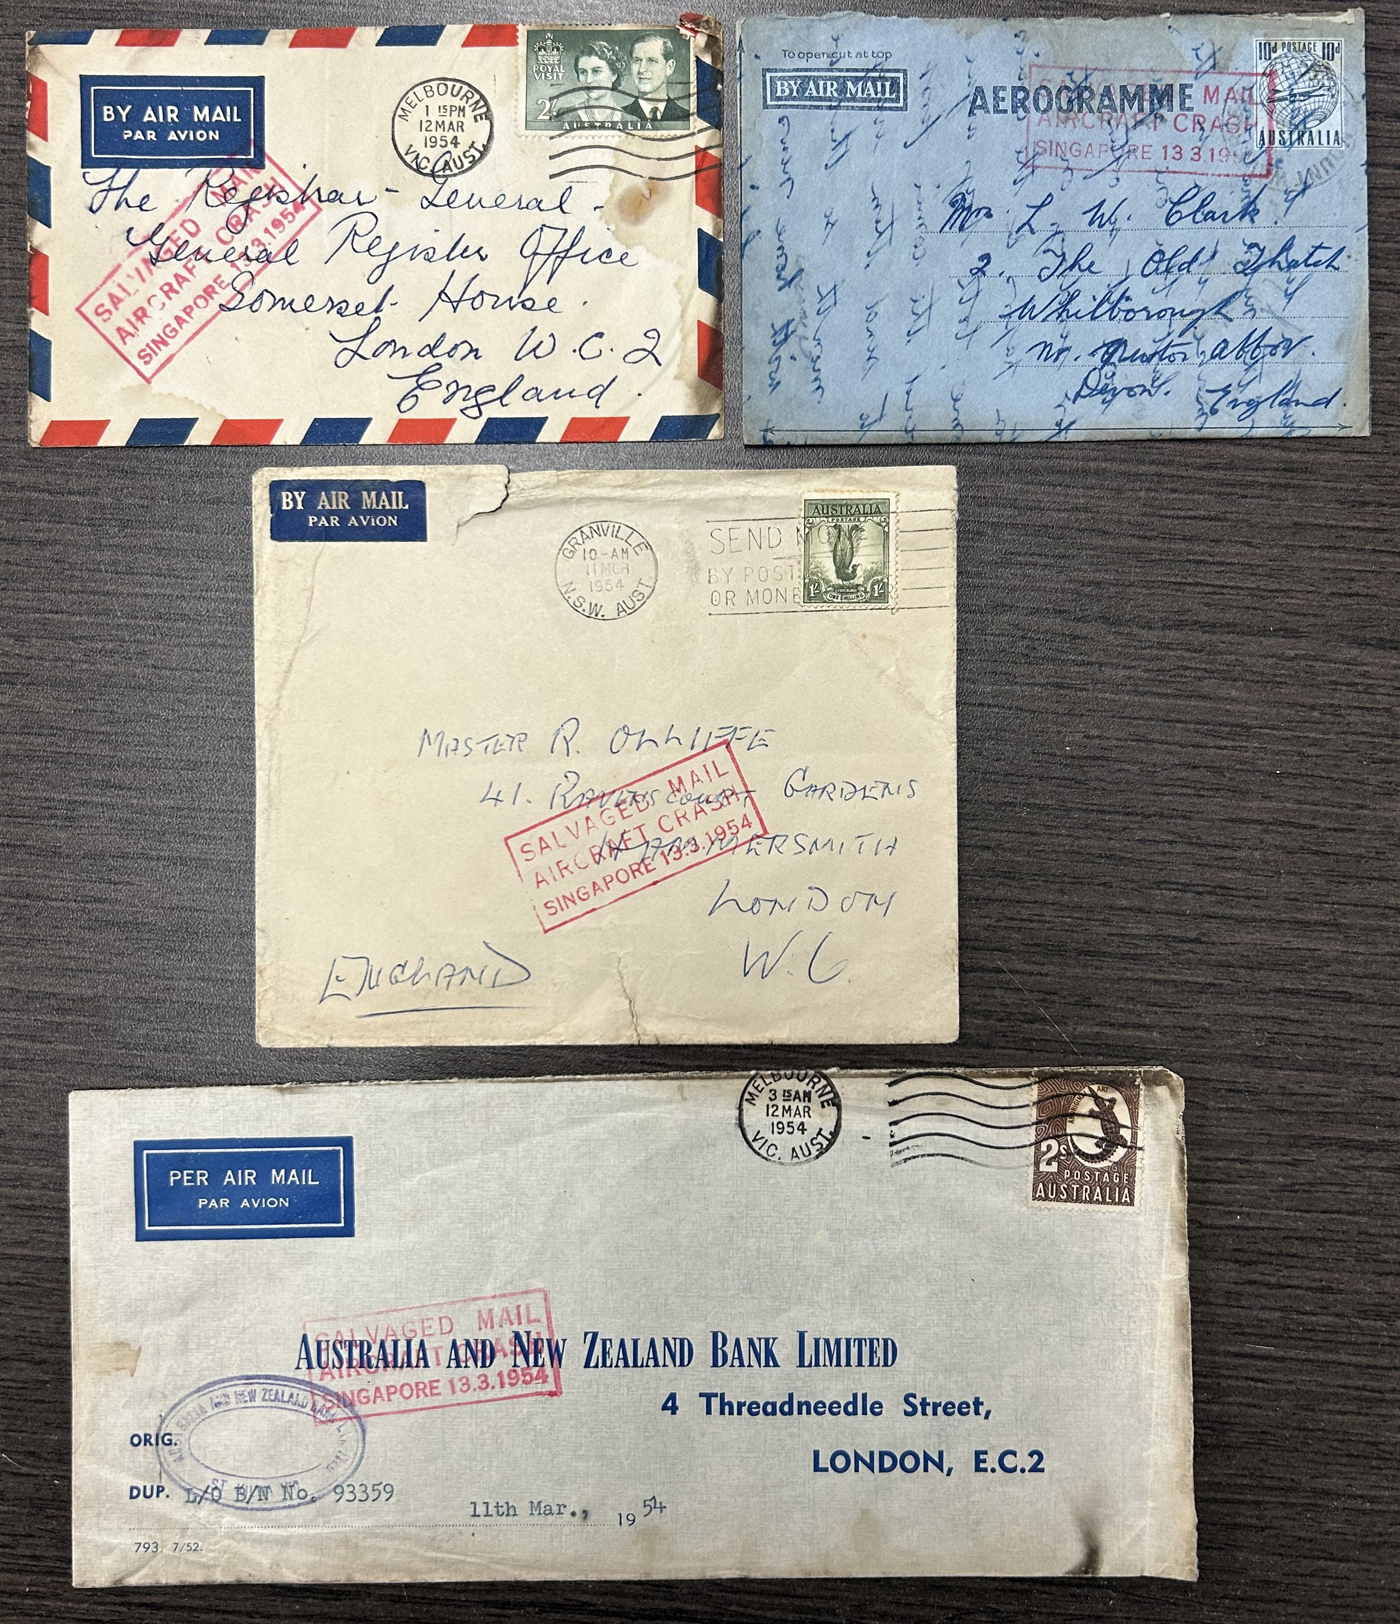 BY AIR MAIL
PAR AVION
MELBOURNE
1 15PM
12 MAR
1954
VIC. AUST.
ROYAL
VISIT
2/-
AUSTRALIA
The Registrar-General -
General Register Office
Somerset House.
London W.C.2
England.
SALVAGED MAIL
AIRCRAFT CRASH
SINGAPORE 13.3.1954
To open cut at top
BY AIR MAIL
AEROGRAMME
10d POSTAGE 10d
AUSTRALIA
SALVAGED MAIL
AIRCRAFT CRASH
SINGAPORE 13 3.19
Mr L. W. Clark
2. The Old Thatch
Whilborough
nr. Newton Abbot.
Devon. England.
BY AIR MAIL
PAR AVION
GRANVILLE
10-AM
11 MCH
1954
N.S.W. AUST.
SEND MO
BY POST
OR MONE
AUSTRALIA
POSTAGE
1/- 1/-
MASTER R. OLLIFFE
41. RAVENSCOURT GARDENS
HAMMERSMITH
LONDON
W.6
ENGLAND
SALVAGED MAIL
AIRCRAFT CRASH
SINGAPORE 13.3.1954
PER AIR MAIL
PAR AVION
MELBOURNE
3 15AM
12 MAR
1954
VIC. AUST.
ART
2s
POSTAGE
AUSTRALIA
SALVAGED MAIL
AIRCRAFT CRASH
SINGAPORE 13.3.1954
AUSTRALIA AND NEW ZEALAND BANK LIMITED
4 Threadneedle Street,
LONDON, E.C.2
AND NEW ZEALAND BANK
ORIG.
DUP. L/O B/N No. 93359
11th Mar., 1954
793. 7/52.